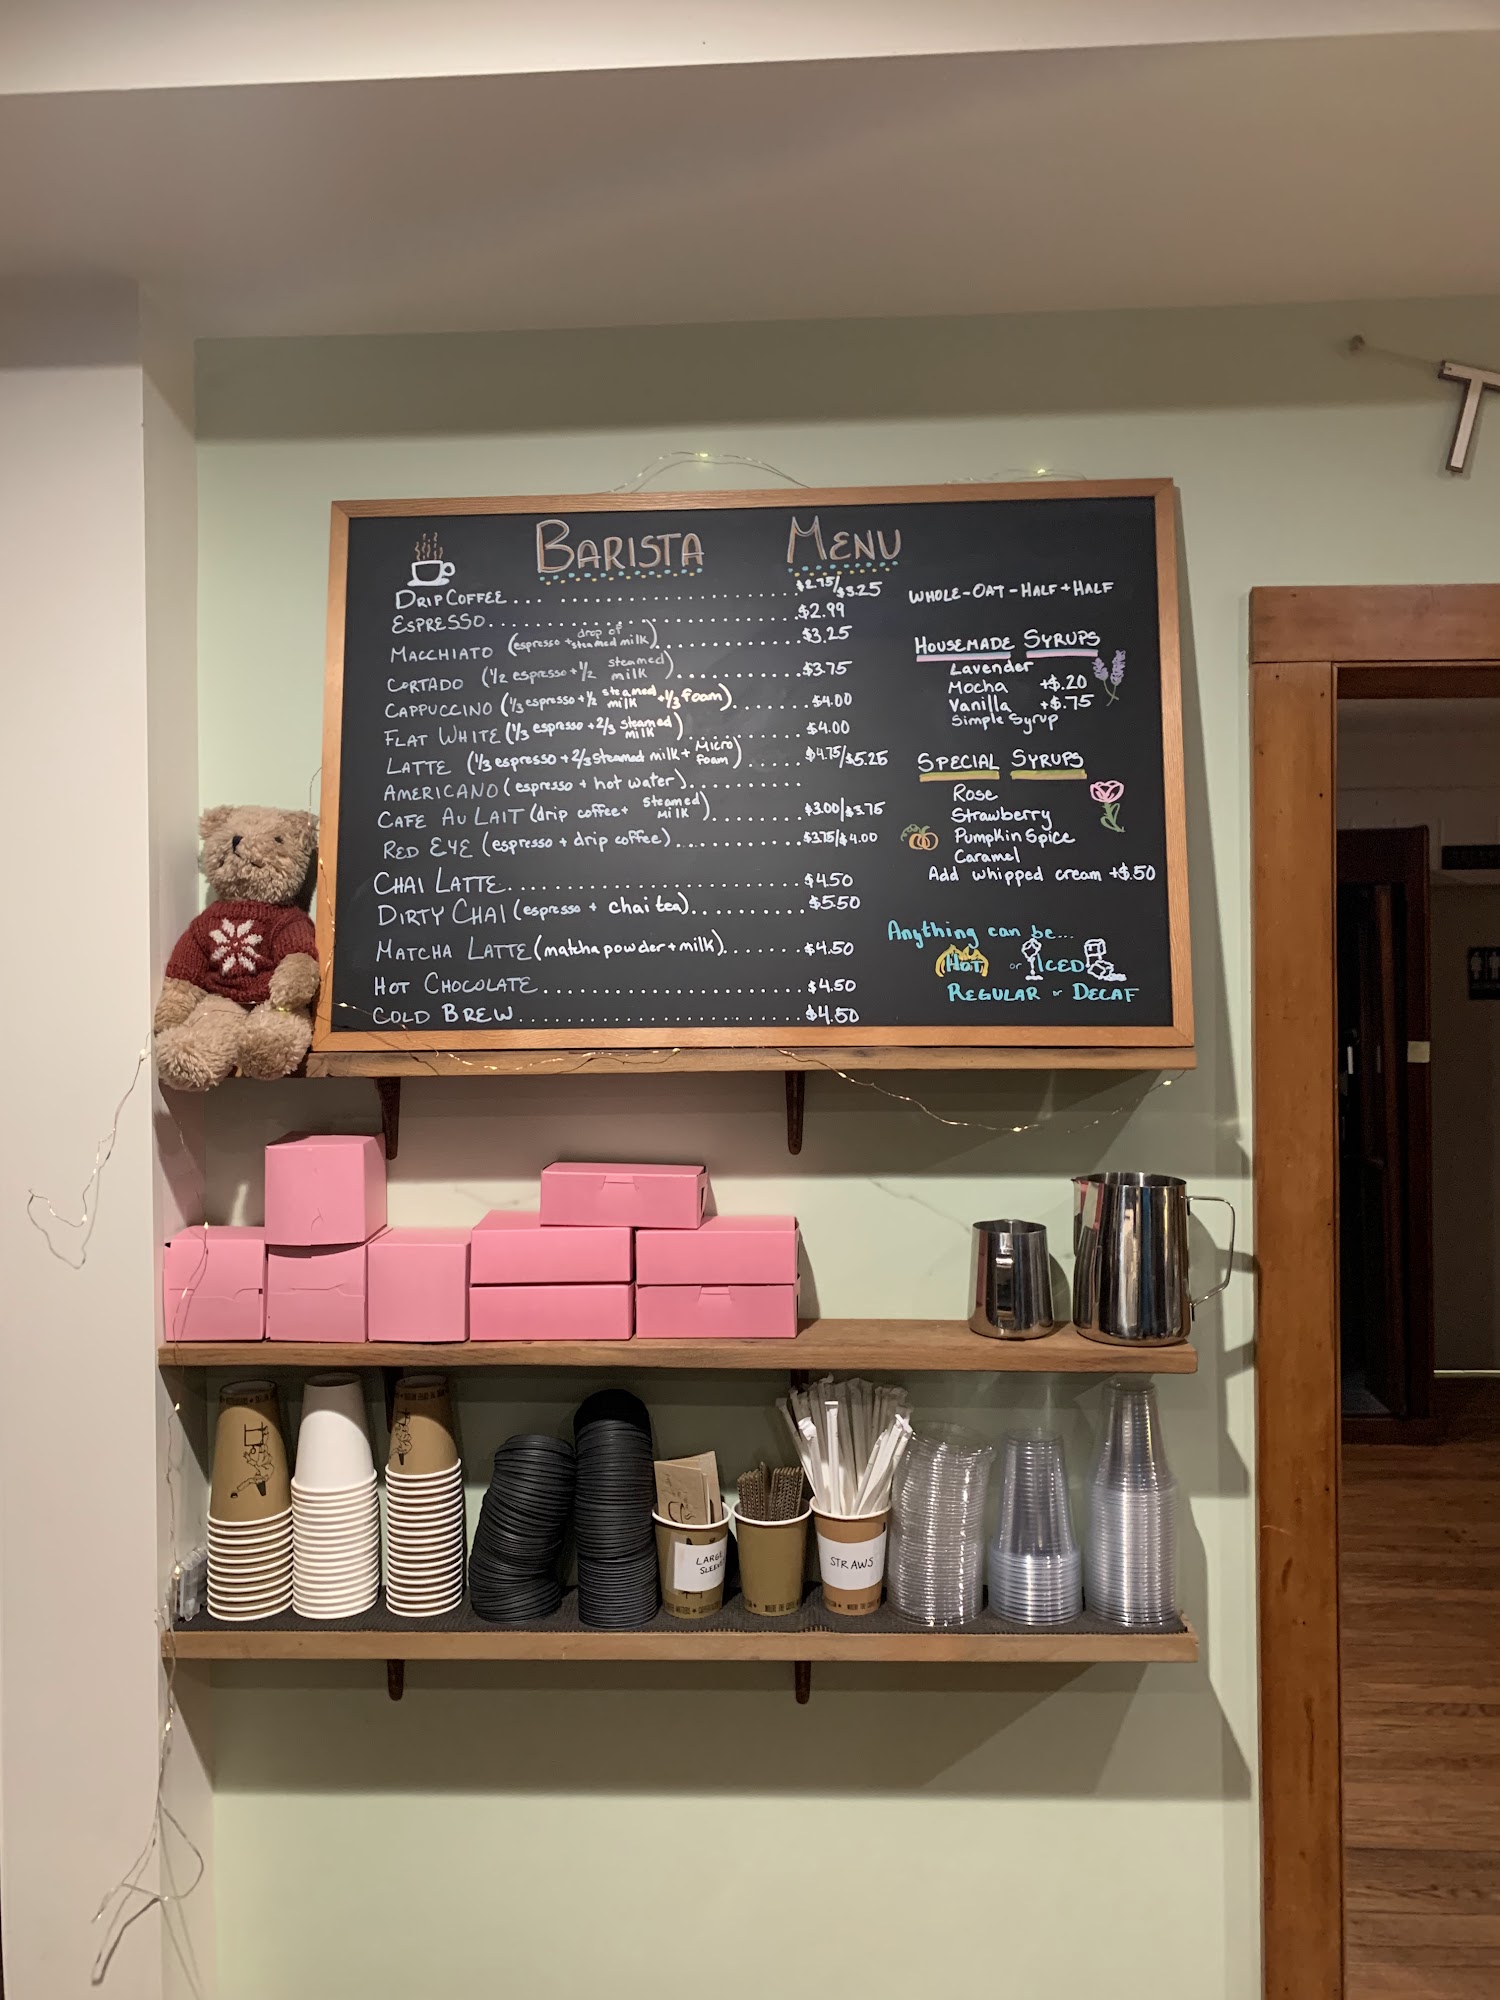 BARISTA MENU
DRIP COFFEE . . . . . . . . . . . . . . . . . . . . $2.75/$3.25
ESPRESSO. . . . . . . . . . . . . . . . . . . . . . . $2.99
MACCHIATO (espresso + drop of steamed milk). . . . . . . . . . $3.25
CORTADO (1/2 espresso + 1/2 steamed milk) . . . . . . . . . $3.75
CAPPUCCINO (1/3 espresso + 1/2 steamed milk + 1/3 foam). . . . . . . $4.00
FLAT WHITE (1/3 espresso + 2/3 steamed milk) . . . . . . . . . $4.00
LATTE (1/3 espresso + 2/3 steamed milk + Micro foam) . . . . . . $4.75/$5.25
AMERICANO (espresso + hot water). . . . . . . . .
CAFE AU LAIT (drip coffee + steamed milk) . . . . . . . . $3.00/$3.75
RED EYE (espresso + drip coffee). . . . . . . . . . $3.75/$4.00
CHAI LATTE. . . . . . . . . . . . . . . . . . . . . . $4.50
DIRTY CHAI (espresso + chai tea). . . . . . . . . . $5.50
MATCHA LATTE (matcha powder + milk). . . . . . . $4.50
HOT CHOCOLATE. . . . . . . . . . . . . . . . . . . $4.50
COLD BREW. . . . . . . . . . . . . . . . . . . . . $4.50
WHOLE - OAT - HALF + HALF
HOUSEMADE SYRUPS
Lavender
Mocha +$.20
Vanilla +$.75
Simple Syrup
SPECIAL SYRUPS
Rose
Strawberry
Pumpkin Spice
Caramel
Add whipped cream +$.50
Anything can be...
HOT or ICED
REGULAR or DECAF
T
LARGE
STRAWS